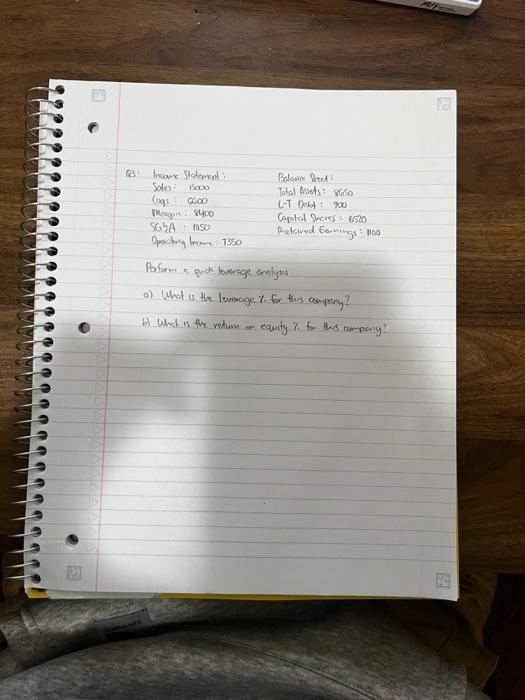 Q3: Income Statement: Balance Sheet:
Sales: 15000 Total Assets: 8650
Cogs: 6600 L-T Debt: 900
Margin: 8400 Capital Shares: 6520
SG&A: 1050 Retained Earnings: 1100
Operating Income: 7350
Perform a quick leverage analysis
a) What is the leverage % for this company?
b) What is the return on equity % for this company?